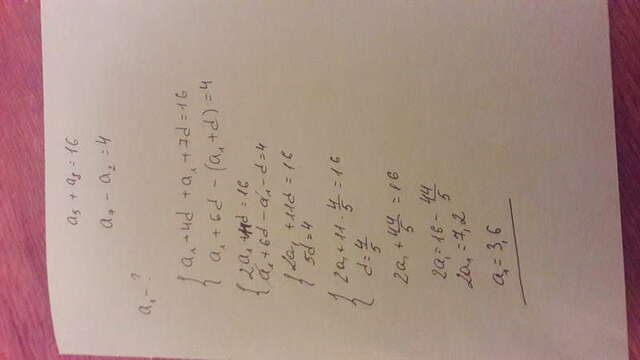 a₅ + a₈ = 16
a₇ - a₂ = 4
a₁ - ?
{ a₁ + 4d + a₁ + 7d = 16
a₁ + 6d - (a₁ + d) = 4
{ 2a₁ + 11d = 16
a₁ + 6d - a₁ - d = 4
{ 2a₁ + 11d = 16
5d = 4
{ 2a₁ + 11 · 4/5 = 16
d = 4/5
2a₁ + 44/5 = 16
2a₁ = 16 - 44/5
2a₁ = 7,2
a₁ = 3,6